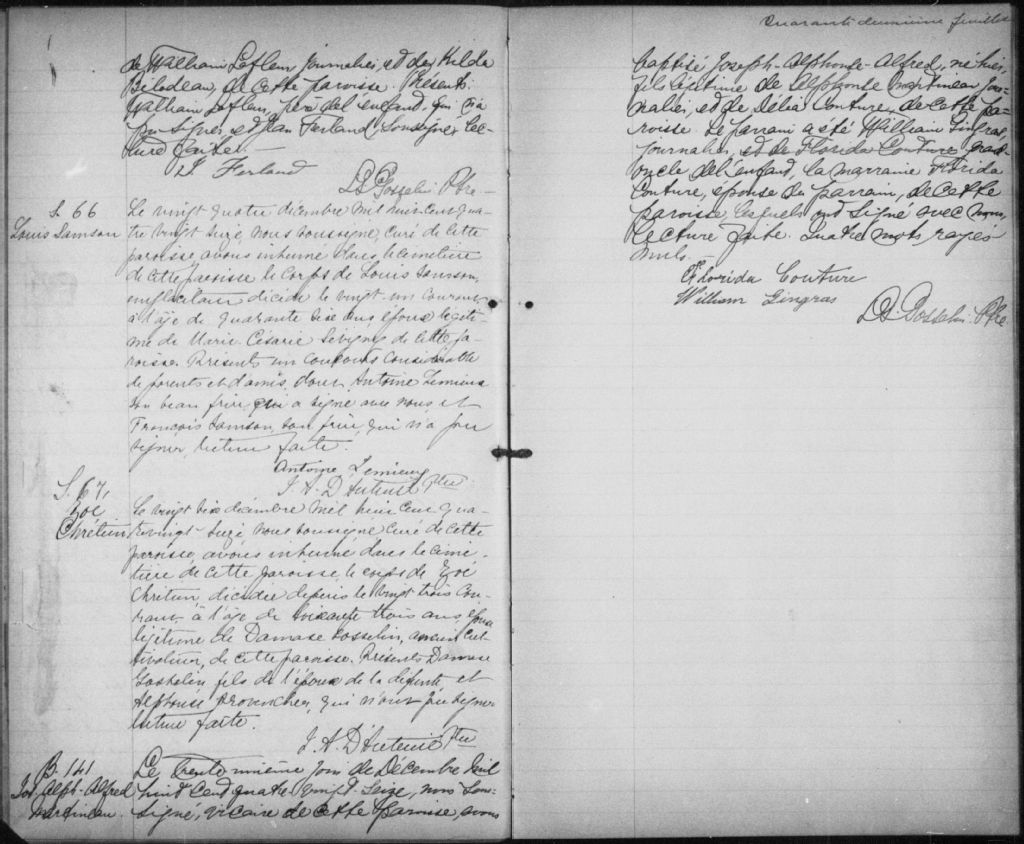 de William Lafleur journalier, et de Hilda
Bilodeau, de cette paroisse. Présents
William Lafleur, père de l'enfant, qui n'a
pu signer, et Jean Ferland, soussigné, lec-
ture faite.
J. Ferland
D. Gosselin Ptre
S. 66
Louis Samson
Le vingt quatre décembre mil huit cent qua-
tre vingt seize, nous soussigné, curé de cette
paroisse, avons inhumé dans le cimetière
de cette paroisse le corps de Louis Samson,
décédé le vingt un courant
à l'âge de quarante six ans, époux légiti-
me de Marie Césarie Lévigne de cette pa-
roisse. Présents un concours considérable
de parents et d'amis, dont Antoine Lemieux
son beau frère, qui a signé avec nous, et
François Samson, son frère, qui n'a pu
signer, lecture faite.
Antoine Lemieux
J. A. D'Auteuil Ptre
S. 67,
Zoé
Chrétien
Le vingt six décembre mil huit cent qua-
tre vingt seize, nous soussigné, curé de cette
paroisse, avons inhumé dans le cime-
tière de cette paroisse, le corps de Zoé
Chrétien, décédée depuis le vingt trois cou-
rant, à l'âge de soixante trois ans, épouse
légitime de Damase Gosselin, ancien cul-
tivateur, de cette paroisse. Présents Damase
Gosselin fils de l'époux de la défunte et
Alphonse Provencher, qui n'ont pu signer
lecture faite.
J. A. D'Auteuil Ptre
B. 141
Jos. Alph. Alfred
Martineau.
Le trente unième jour de Décembre mil
huit cent quatre vingt seize, nous sous-
signé, vicaire de cette paroisse, avons
Quarante deuxième feuillet
baptisé Joseph-Alphonse-Alfred, né hier,
fils légitime de Alphonse Martineau, jour-
nalier, et de Délia Couture, de cette pa-
roisse. Le parrain a été William Gingras,
journalier, et de Florida Couture, grand
oncle de l'enfant, la marraine Florida
Couture, épouse du parrain, de cette
paroisse, lesquels ont signé avec nous,
lecture faite. Quatre mots rayés
nuls.
Florida Couture
William Gingras
D. Gosselin Ptre